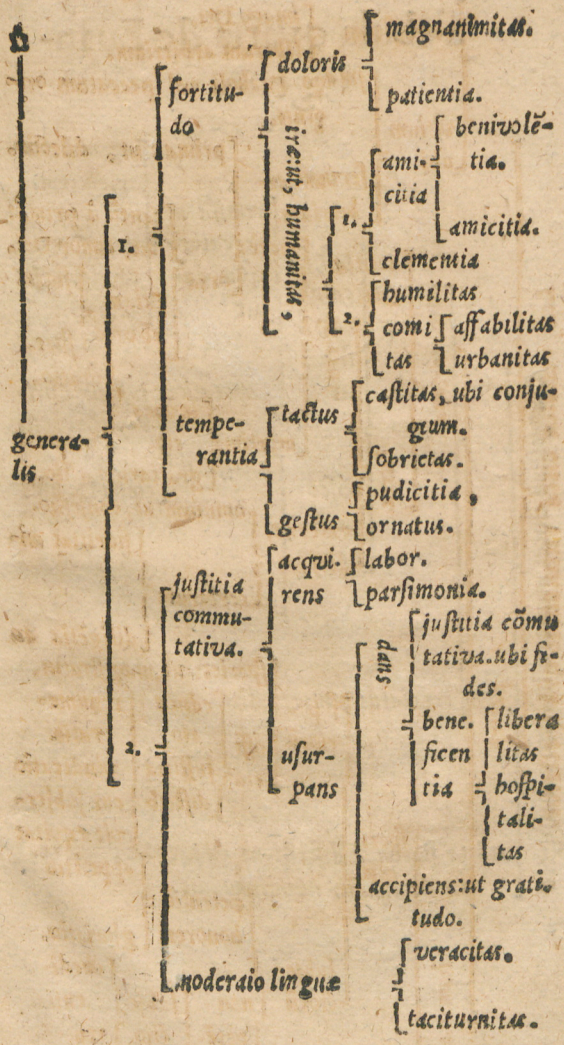 genera-
lis
1.
fortitu-
do
doloris
magnanimitas.
patientia.
iræ:ut, humanitas,
1.
ami-
citia
benivolẽ-
tia.
amicitia.
clementia
2.
humilitas
comi
tas
affabilitas
urbanitas
tempe-
rantia
tactus
castitas, ubi conju-
gium.
sobrietas.
gestus
pudicitia,
ornatus.
2.
justitia
commu-
tativa.
acqui-
rens
labor.
parsimonia.
usur-
pans
dans
justitia cõmu
tativa.ubi fi-
des.
bene.
ficen
tia
libera
litas
hospi-
tali-
tas
accipiens:ut grati-
tudo.
moderaio linguæ
veracitas.
taciturnitas.